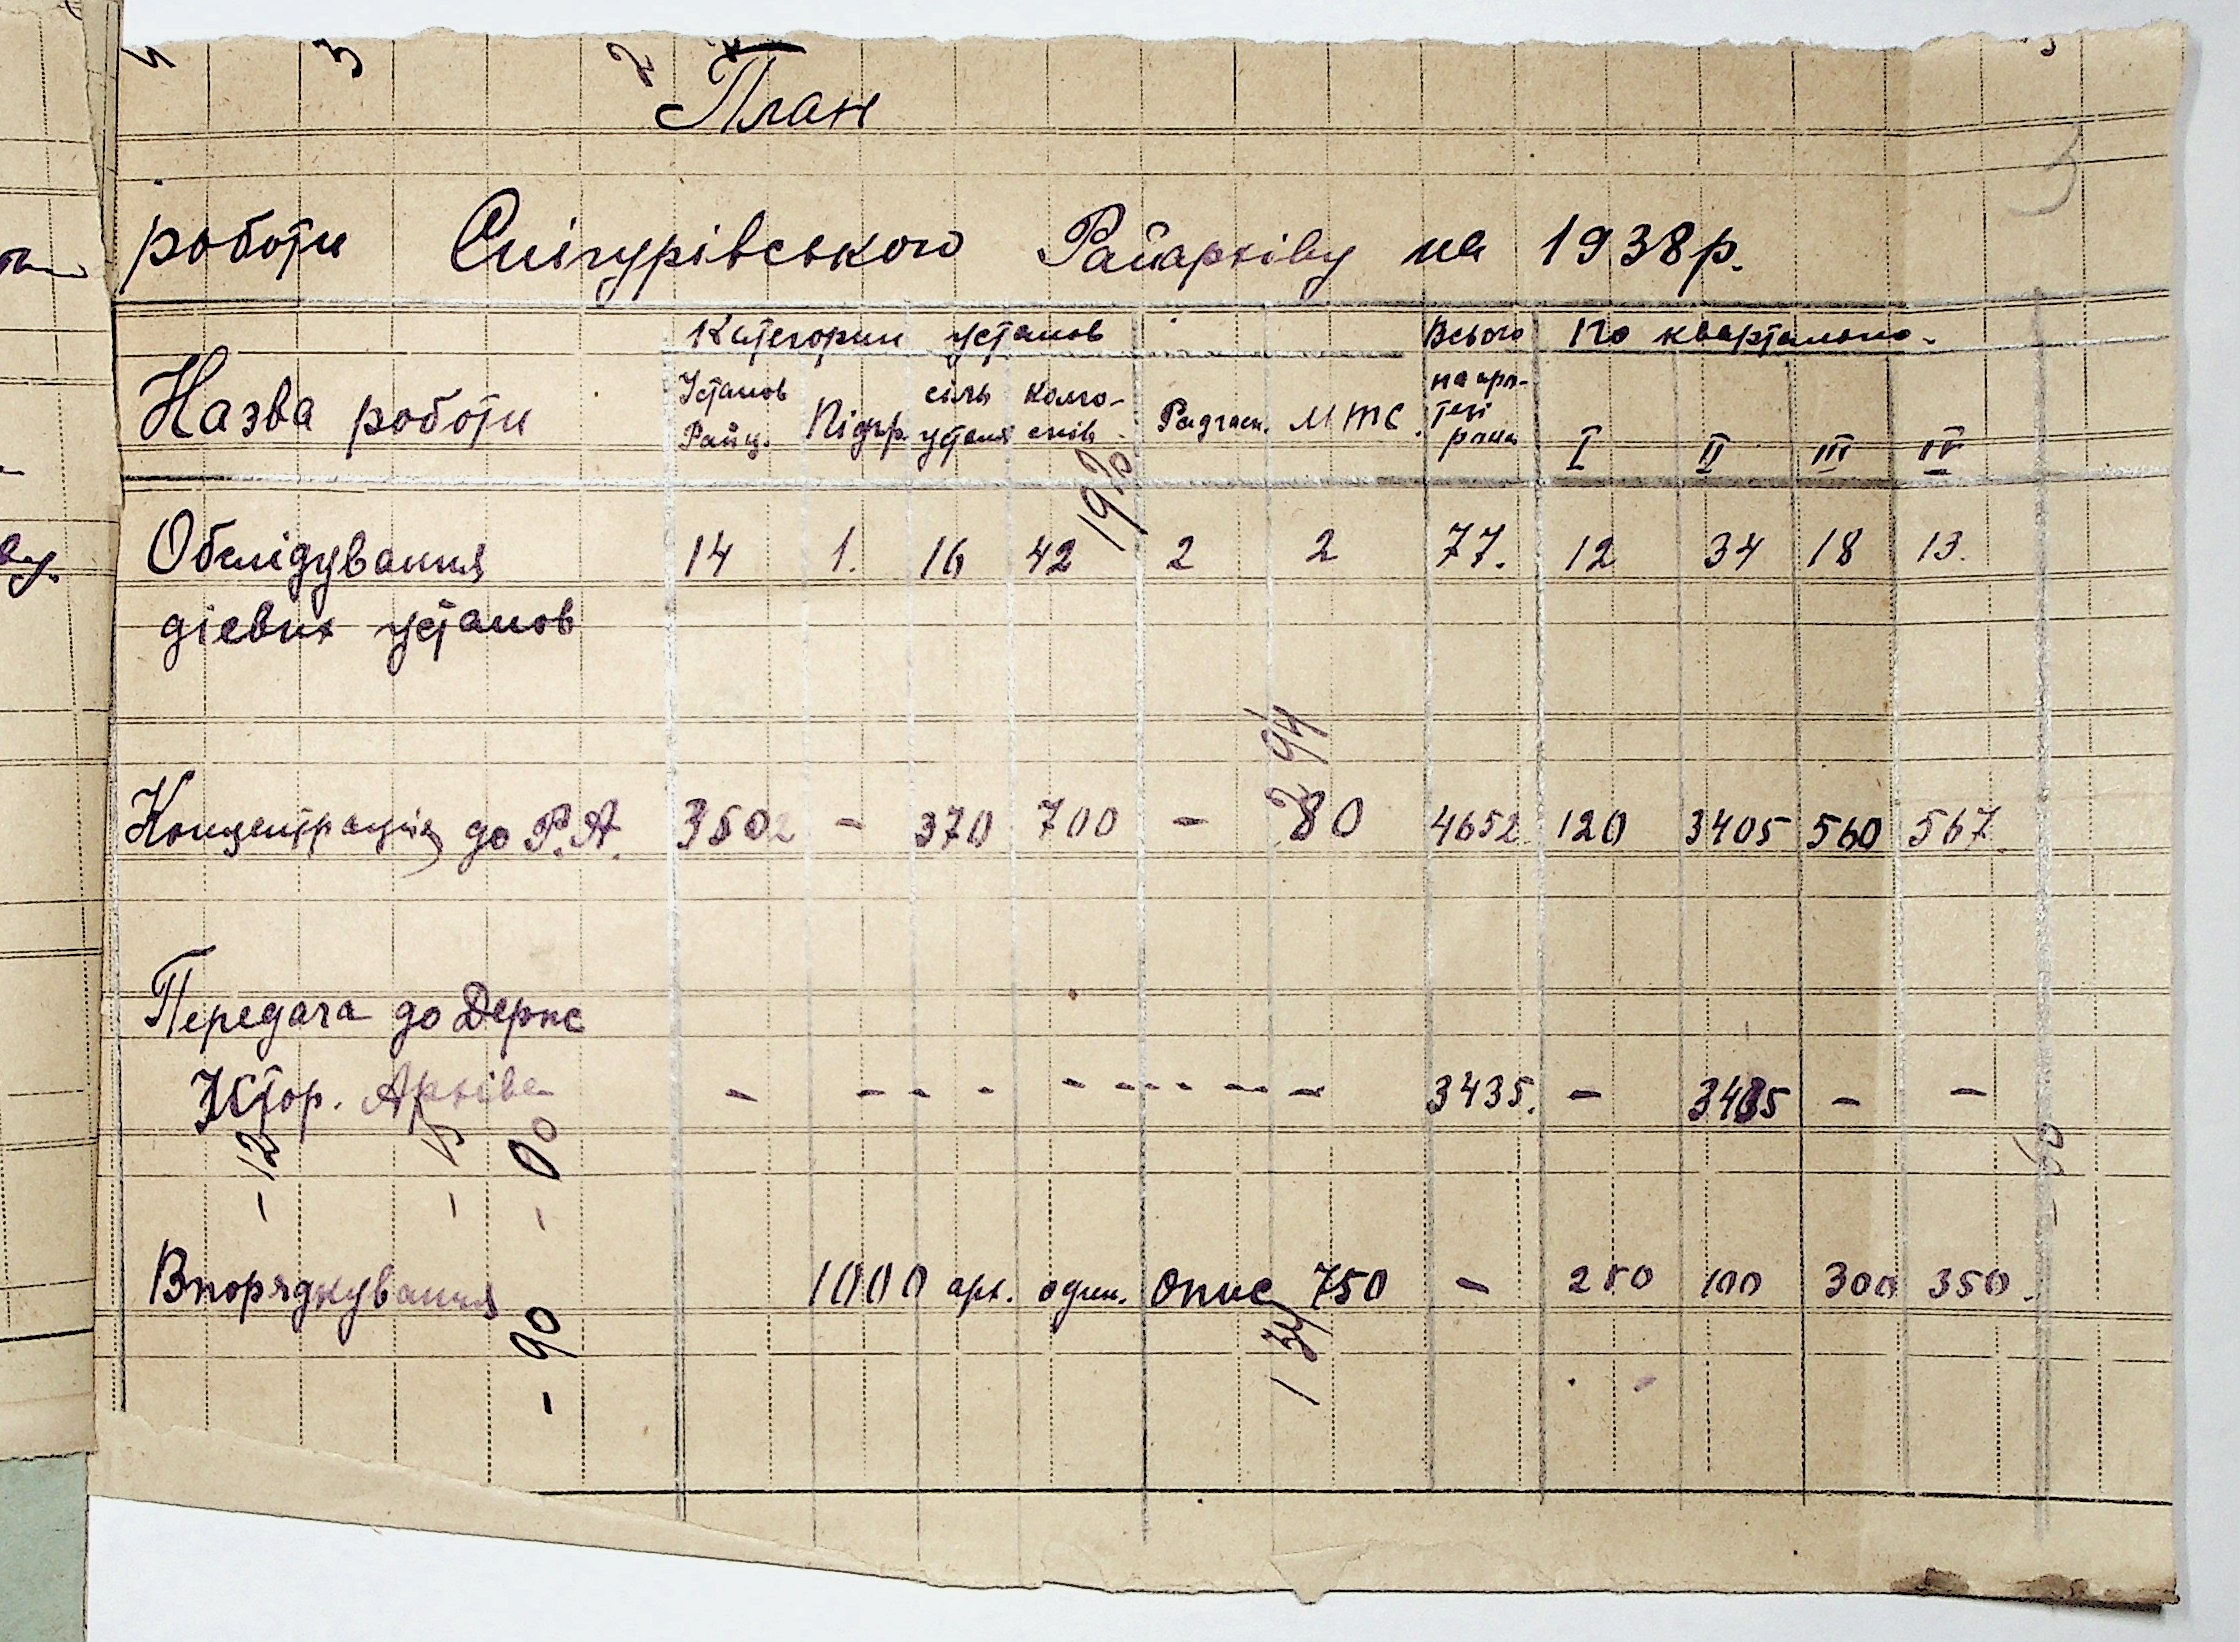 План
роботи Снігурівського Райархіву на 1938р.
Категории установ Всього По квартально.
Назва роботи Установ Райц. Підпр. сіль устан колгоспів Радгосп. МТС. на протезі рока I II III IV
Обслідування 14 1. 16 42 2 2 77. 12 34 18 13.
дієвих установ
Концентрація до Р.А. 3502 - 370 700 - 80 4652 120 3405 560 567
Передача до Держ
Істор. Архіва - - - - - - - - - 3435. - 3435 - -
Впорядкування 1000 арх. один. опис 750 - 250 100 300 350.
- 90